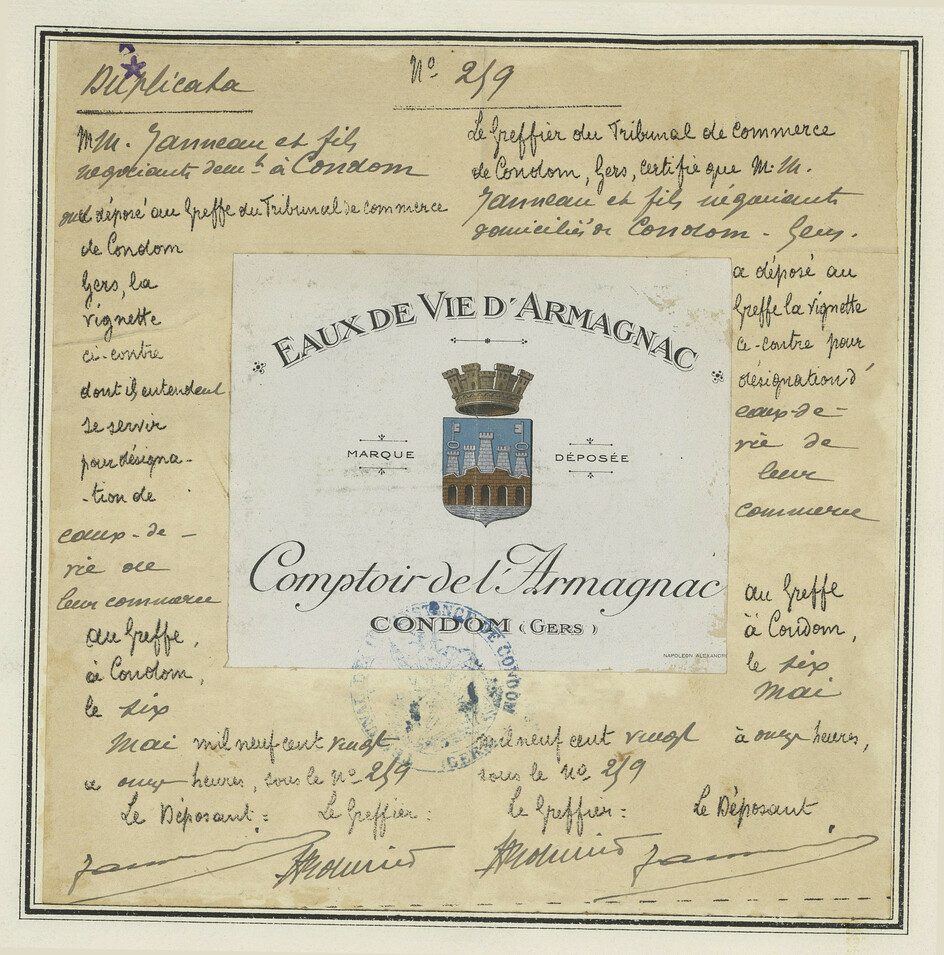 Duplicata
N° 259
MM. Janneau et fils
négociants demts à Condom
ont déposé au Greffe du Tribunal de commerce
de Condom
Gers, la
vignette
ci-contre
dont ils entendent
se servir
pour désigna-
-tion de
eaux-de-
vie de
leur commerce
au Greffe,
à Condom,
le six
Mai mil neuf cent vingt
a onze heures, sous le N° 259
Le Déposant : Le Greffier :
Le Greffier du Tribunal de commerce
de Condom, Gers, certifie que M.M.
Janneau et fils négociants
domiciliés à Condom - Gers.
a déposé au
Greffe la vignette
ci-contre pour
désignation d'
eaux-de-
vie de
leur
commerce
au Greffe
à Condom,
le six
Mai
mil neuf cent vingt à onze heures,
sous le N° 259
Le Greffier : Le Déposant
EAUX DE VIE D'ARMAGNAC
MARQUE DÉPOSÉE
Comptoir de l'Armagnac
CONDOM (GERS)
NAPOLEON ALEXANDRE